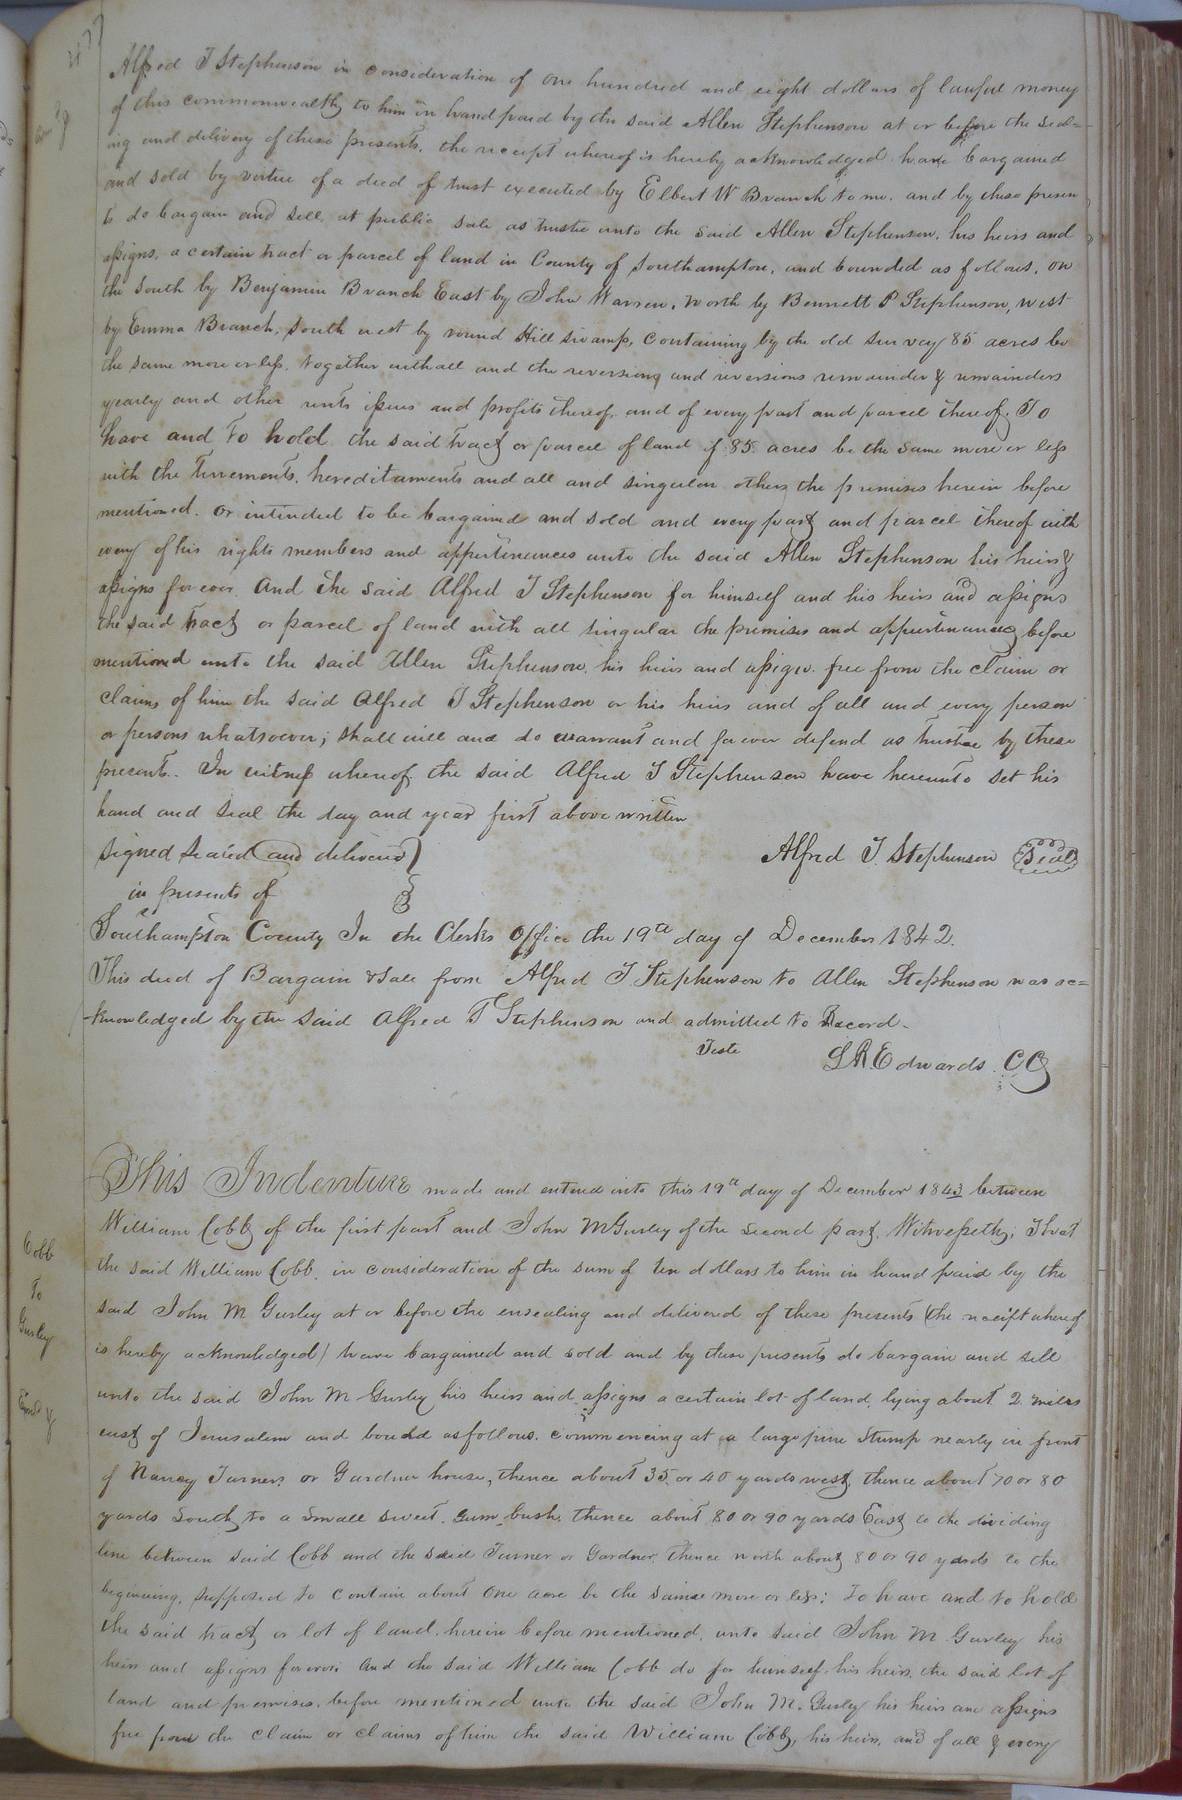 477
Alfred T Stephenson in consideration of one hundred and eight dollars of lawful money
of this commonwealth to him in hand paid by the said Allen Stephenson at or before the seal=
ing and delivery of these presents, the receipt whereof is hereby acknowledged have bargained
and sold by virtue of a deed of trust executed by Elbert W Branch to me. and by these presen
ts do bargain and sell at public sale as trustee unto the said Allen Stephenson, his heirs and
assigns, a certain tract or parcel of land in County of Southampton, and bounded as follows, on
the South by Benjamin Branch East by John Warren, North by Bennett P Stephenson, west
by Emma Branch, South west by round Hill swamp, Containing by the old survey 85 acres be
the same more or less. together with all and the reversion and reversions remainder & remainders
yearly and other rents issues and profits thereof, and of every part and parcel thereof. To
have and to hold the said tract or parcel of land of 85 acres be the same more or less
with the tenements, hereditaments and all and singular others the premises herein before
mentioned. or intended to be bargained and sold and every part and parcel thereof with
every of his rights members and appurtinances unto the said Allen Stephenson his heirs &
assigns forever. And the said Alfred T Stephenson for himself and his heirs and assigns
the said tract or parcel of land with all singular the premises and appurtinances before
mentioned unto the said Allen Stephenson, his heirs and assigns. free from the claim or
claims of him the said Alfred T Stephenson or his heirs and of all and every person
or persons whatsoever; shall will and do warrant and forever defend as trustee by these
presents. In witness whereof, the said Alfred T Stephenson have hereunto set his
hand and seal the day and year first above written
Signed sealed and delivered } Alfred T. Stephenson Seal
in presents of
Southampton County In the Clerks Office the 19th day of December 1842.
This deed of Bargain & Sale from Alfred T. Stephenson to Allen Stephenson was ac=
knowledged by the said Alfred T Stephenson and admitted to Record.
Teste L R Edwards CC
This Indenture made and entered into this 19th day of December 1843 between
William Cobb of the first part and John M Gurley of the second part. Witnesseth; That
the said William Cobb, in consideration of the sum of ten dollars to him in hand paid by the
said John M Gurley at or before the ensealing and delivered of these presents (the receipt whereof
is hereby acknowledged) have bargained and sold and by these presents do bargain and sell
unto the said John M Gurley his heirs and assigns a certain lot of land, lying about 2 miles
east of Jerusalem and bound as follows. commencing at a large pine Stump nearly in front
of Nancy Turners or Gardner house, thence about 35 or 40 yards west, thence about 70 or 80
yards South to a small sweet. Gum bush, thence about 80 or 90 yards East to the dividing
line between said Cobb and the said Turner or Gardner, thence north about 80 or 90 yards to the
beginning, supposed to contain about one acre be the same more or less; To have and to hold
the said tract or lot of land. herein before mentioned, unto said John M Gurley his
heirs and assigns forever. And the said William Cobb do for himself, his heirs, the said lot of
land and premises. before mentioned unto the said John M. Gurley his heirs and assigns
free from the claim or claims of him the said William Cobb, his heirs, and of all & every
Cobb
To
Gurley